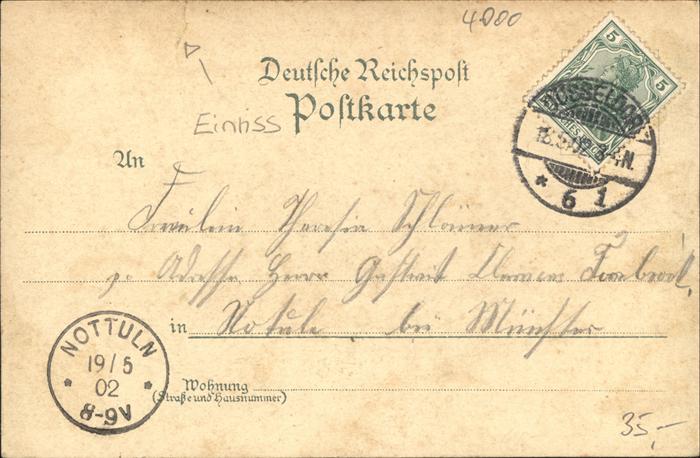 4000
Deutsche Reichspost
Postkarte
5 5
DÜSSELDORF
18.5.02. 3-4N.
* 6 1
Einriss
An
Fräulein Theresia
pr. Adresse Herrn Gastwirt Clemens
in Notuln bei Münster
NOTTULN
19/5
* 02 *
8-9V
Wohnung
(Straße und Hausnummer)
35,-